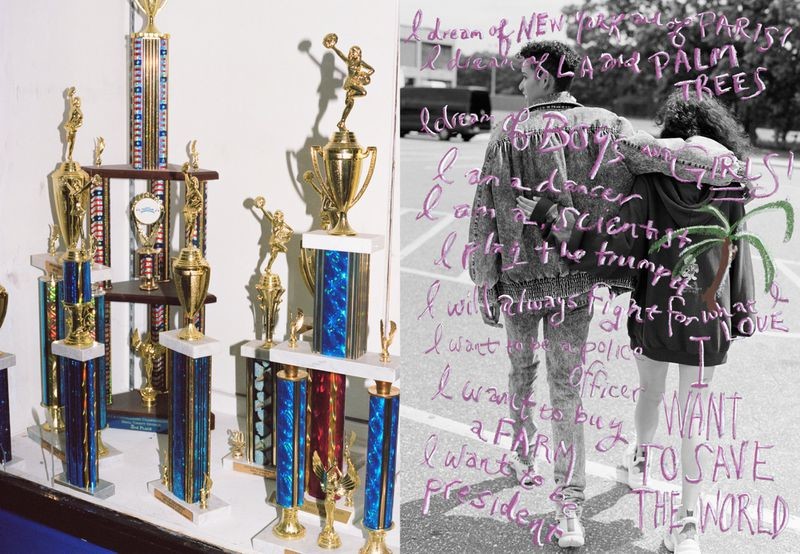 2ND PLACE
I dream of NEW YORK and of PARIS!
I dream of LA and PALM
TREES
I dream of Boys AND GIRLS!
I am a dancer
I am a scientist
I play the trumpet
I will always fight for what I
LOVE
I want to be a police
officer
I want to buy
a FARM
I want to be
president
I
WANT
TO SAVE
THE WORLD